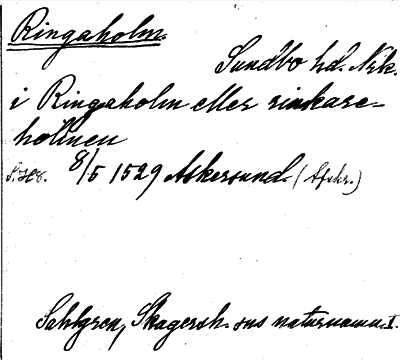 Ringaholm
Sundbo hd. Nrk.
i Ringaholm eller rinkare-
holmen
8/5 1529 Askersund. (Afskr.)
Sahlgren, Skagersh. sns naturnamn. I.